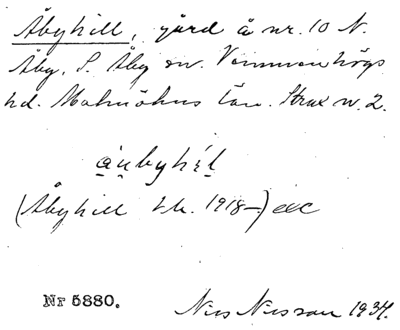 Åbyhill, gård å nr. 10 N.
Åby, S. Åby sn. Vemmenhögs
hd. Malmöhus län. Strax v. 2.
áu̯byhíl
(Åbyhill t.k. 1918–) ecc
Nr 5880.
Nils Nilsson 1934.